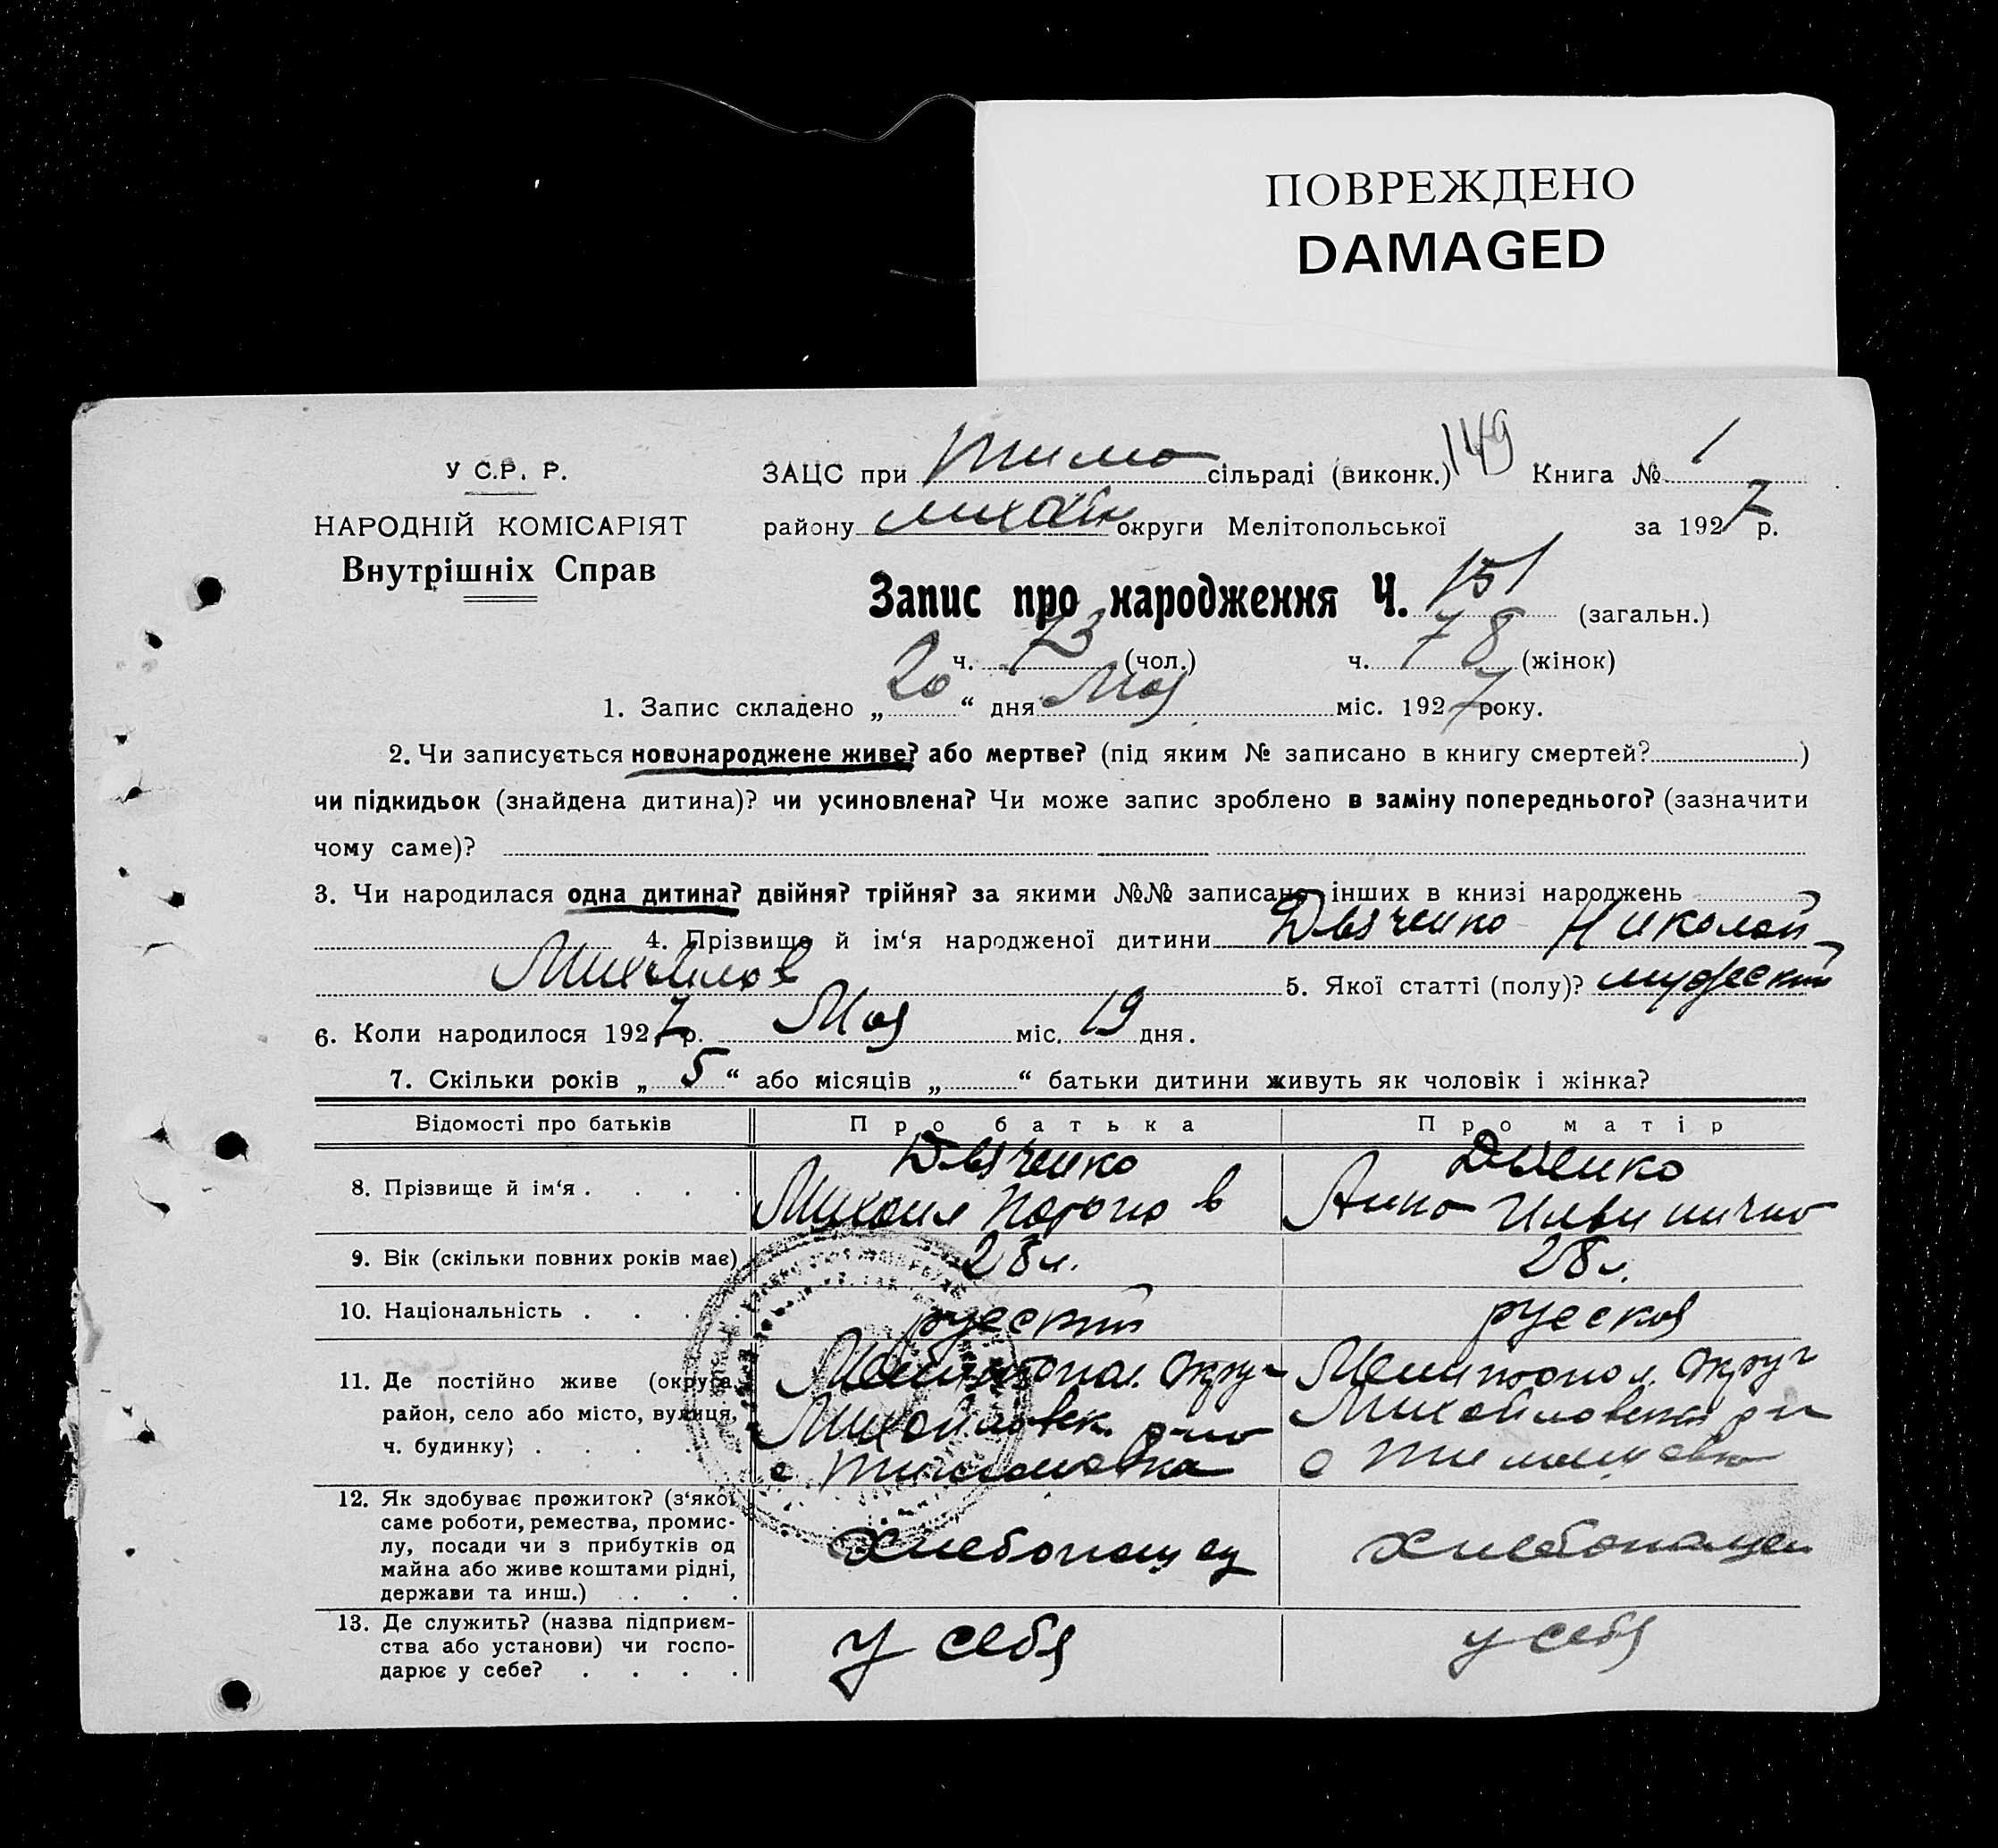 ПОВРЕЖДЕНО
DAMAGED
У С.Р. Р.
НАРОДНІЙ КОМІСАРІЯТ
Внутрішніх Справ
ЗАЦС при Тимо сільраді (виконк.) 149 Книга № 1
району Михайл округи Мелітопольської за 1927 р.
Запис про народження Ч. 151 (загальн.)
ч. 73 (чол.) ч. 78 (жінок)
1. Запис складено „20“ дня Мая міс. 1927 року.
2. Чи записується новонароджене живе? або мертве? (під яким № записано в книгу смертей? )
чи підкидьок (знайдена дитина)? чи усиновлена? Чи може запис зроблено в заміну попереднього? (зазначити
чому саме)?
3. Чи народилася одна дитина? двійня? трійня? за якими №№ записано інших в книзі народжень
4. Прізвище й ім‘я народженої дитини Дьяченко Николай
Михайлов 5. Якої статті (полу)? мужеский
6. Коли народилося 1927 р. Мая міс. 19 дня.
7. Скільки років „5“ або місяців „ “ батьки дитини живуть як чоловік і жінка?
Відомості про батьків Про батька Про матір
Дьяченко
8. Прізвище й ім‘я . . . . Михаил Анна
9. Вік (скільки повних років має) 28 л. 28 л.
10. Національність . . . русский русская
11. Де постійно живе (округа, Мелитопол. Округ Мелитопол. Округ
район, село або місто, вулиця, Михайловск. р-на Михайловский р-н
ч. будинку) . . . . с Тимошовка с Тимошовка
12. Як здобуває прожиток? (з‘якої
саме роботи, ремества, промис-
лу, посади чи з прибутків од хлебопашец хлебопашец
майна або живе коштами рідні,
держави та инш.) . . .
13. Де служить? (назва підприєм-
ства або установи) чи госпо- у себя у себя
дарює у себе? . . . .